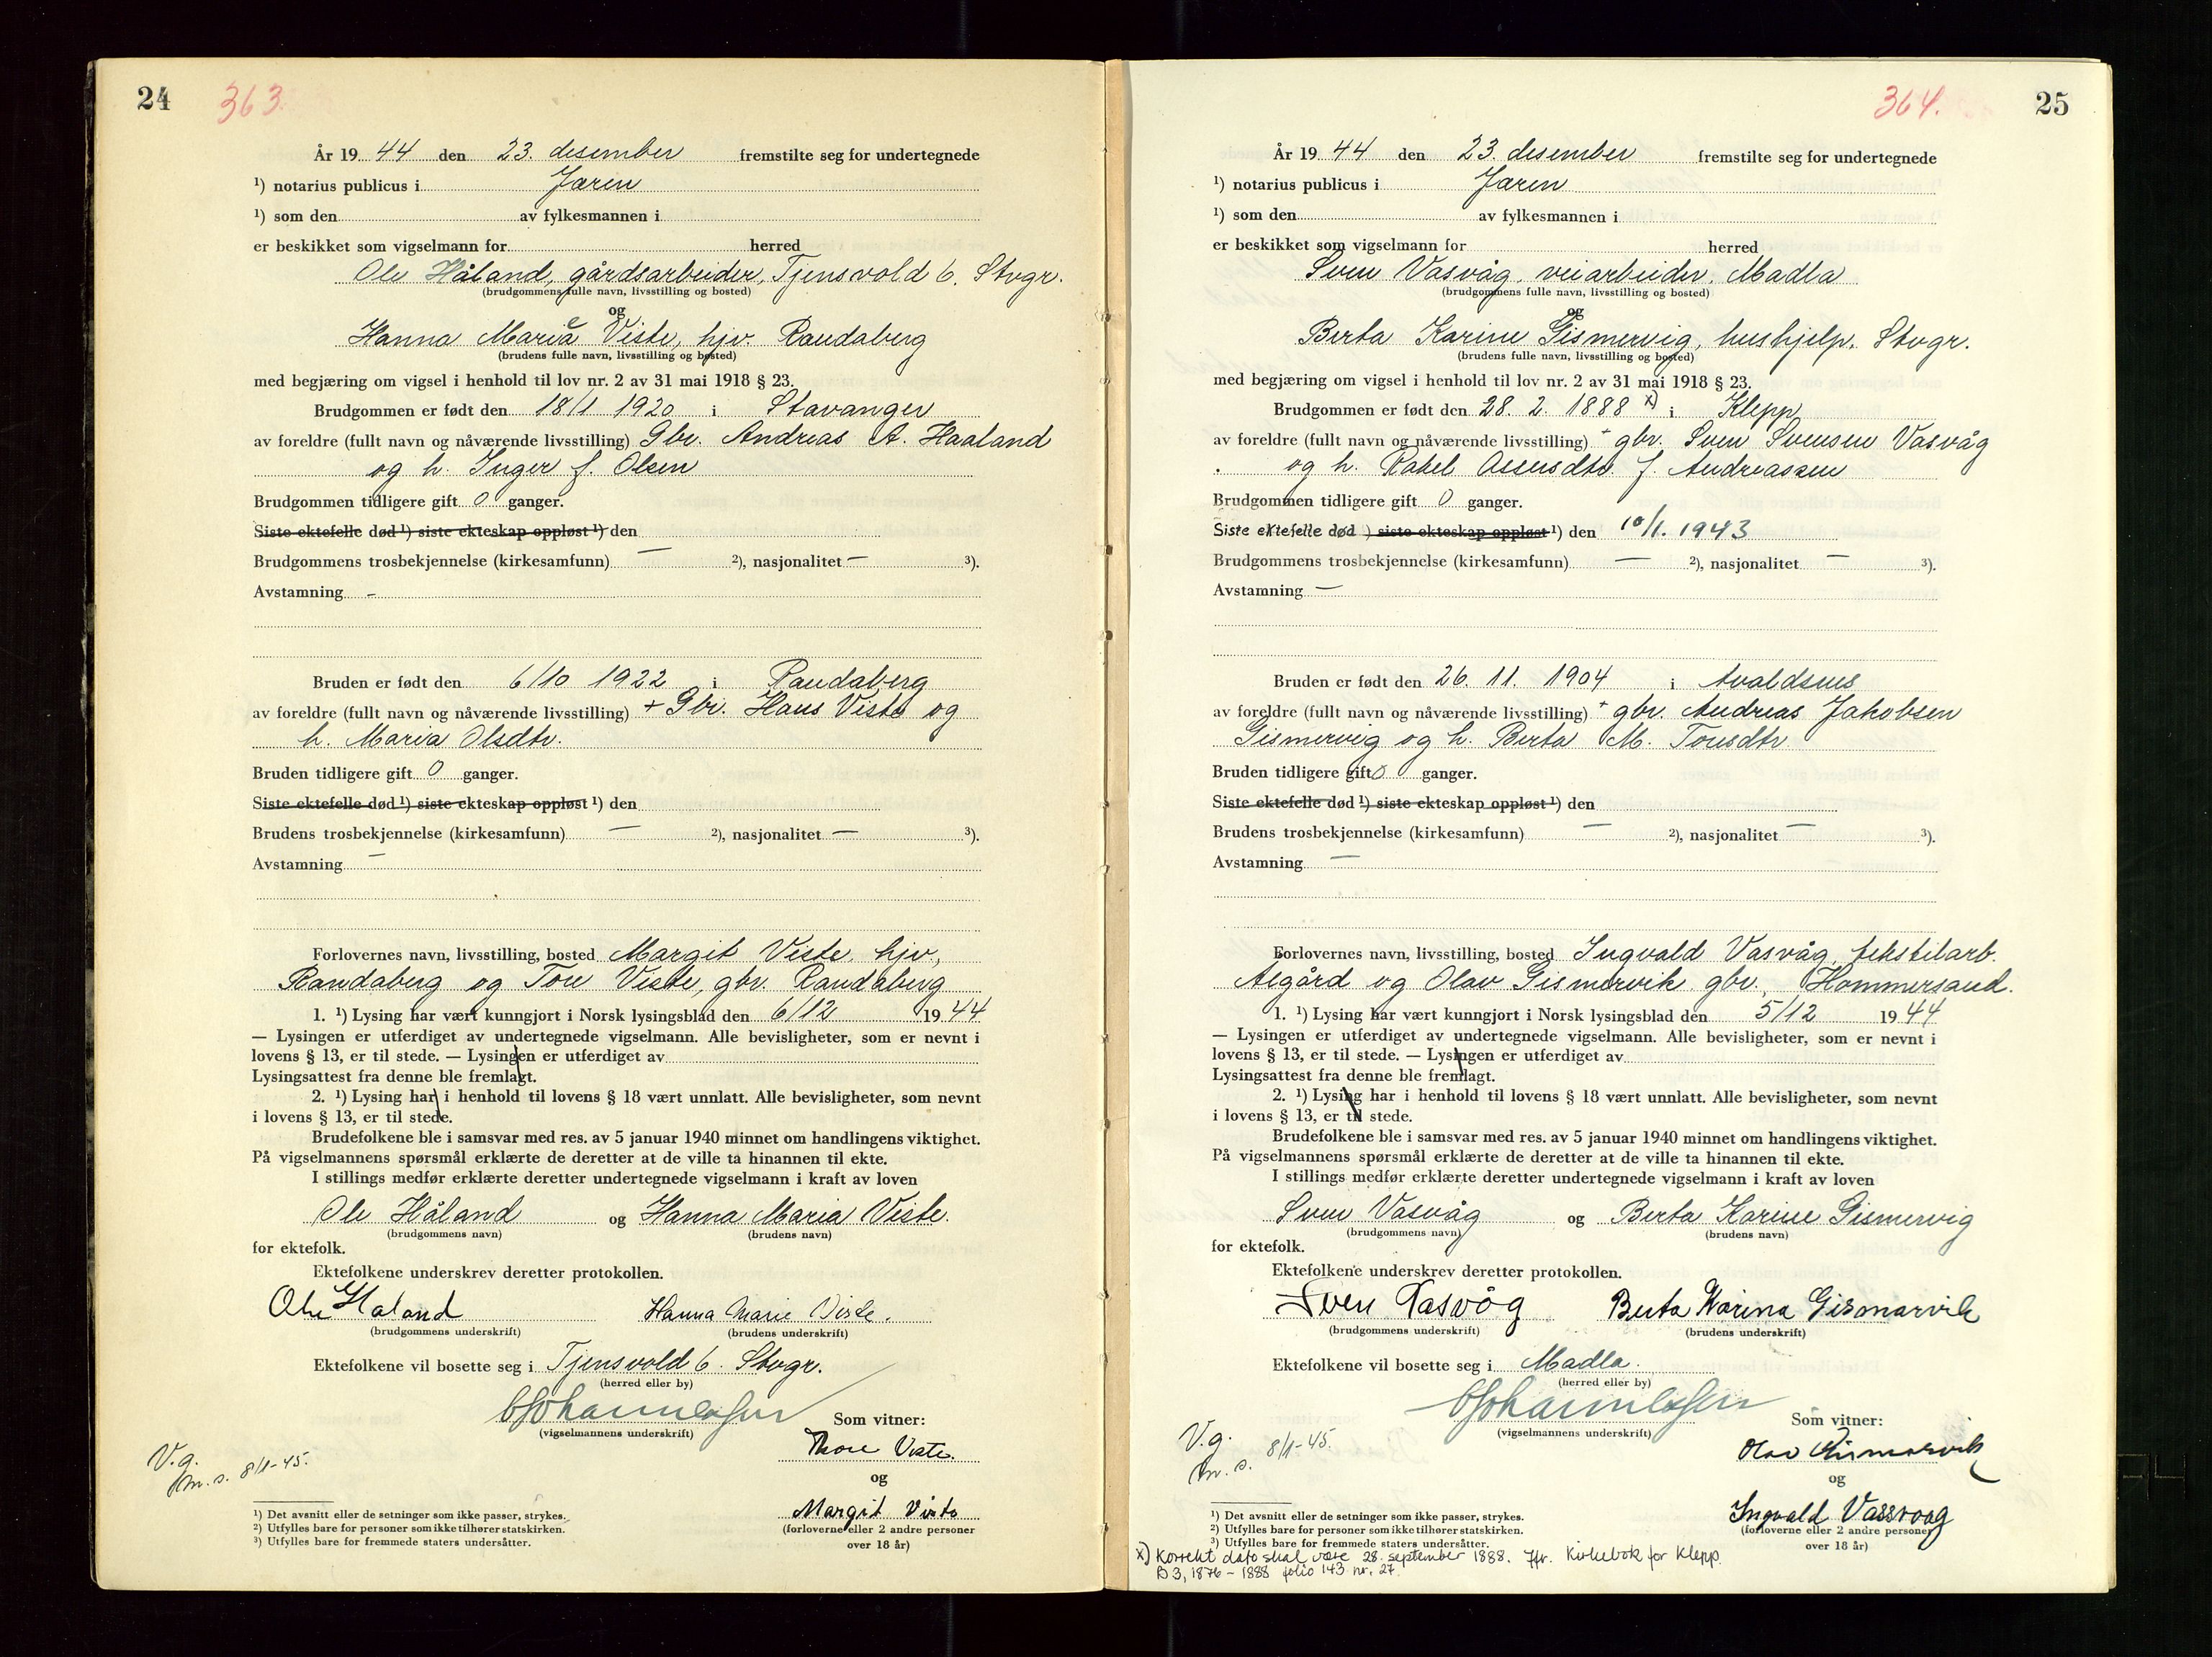 24 363.
År 19 44 den 23. desember fremstilte seg for undertegnede
¹) notarius publicus i Jæren
¹) som den av fylkesmannen i
er beskikket som vigselmann for herred
Ole Håland, gårdsarbeider, Tjensvold 6. Stvgr.
(brudgommens fulle navn, livsstilling og bosted)
og
Hanna Maria Viste, hjv. Randaberg
(brudens fulle navn, livsstilling og bosted)
med begjæring om vigsel i henhold til lov nr. 2 av 31 mai 1918 § 23.
Brudgommen er født den 18/1 1920 i Stavanger
av foreldre (fullt navn og nåværende livsstilling) Gbr. Andreas A. Haaland
og h. Inger f. Olsen
Brudgommen tidligere gift 0 ganger.
Siste ektefelle død ¹) siste ekteskap oppløst ¹) den
Brudgommens trosbekjennelse (kirkesamfunn) — ²), nasjonalitet — ³).
Avstamning –
Bruden er født den 6/10 1922 i Randaberg
av foreldre (fullt navn og nåværende livsstilling) + Gbr. Hans Viste og
h. Maria Olsdtr.
Bruden tidligere gift 0 ganger.
Siste ektefelle død ¹) siste ekteskap oppløst ¹) den
Brudens trosbekjennelse (kirkesamfunn) — ²), nasjonalitet — ³).
Avstamning —
Forlovernes navn, livsstilling, bosted Margit Viste hjv,
Randaberg og Tore Viste, gbr. Randaberg
1. ¹) Lysing har vært kunngjort i Norsk lysingsblad den 6/12 19 44
— Lysingen er utferdiget av undertegnede vigselmann. Alle bevisligheter, som er nevnt i
lovens § 13, er til stede. — Lysingen er utferdiget av
Lysingsattest fra denne ble fremlagt.
2. ¹) Lysing har i henhold til lovens § 18 vært unnlatt. Alle bevisligheter, som nevnt
i lovens § 13, er til stede.
Brudefolkene ble i samsvar med res. av 5 januar 1940 minnet om handlingens viktighet.
På vigselmannens spørsmål erklærte de deretter at de ville ta hinannen til ekte.
I stillings medfør erklærte deretter undertegnede vigselmann i kraft av loven
Ole Håland og Hanna Maria Viste.
(brudgommens navn) (brudens navn)
for ektefolk.
Ektefolkene underskrev deretter protokollen.
Ole Håland Hanna Marie Viste.
(brudgommens underskrift) (brudens underskrift)
Ektefolkene vil bosette seg i Tjensvold 6. Stvgr.
(herred eller by)
(vigselmannens underskrift)
Som vitner:
Thore Viste.
og
V.g.
m.s. 8/1-45.
Margit Viste
(forloverne eller 2 andre personer
over 18 år)
¹) Det avsnitt eller de setninger som ikke passer, strykes.
²) Utfylles bare for personer som ikke tilhører statskirken.
³) Utfylles bare for fremmede staters undersåtter.
364. 25
År 19 44 den 23. desember fremstilte seg for undertegnede
¹) notarius publicus i Jæren
¹) som den av fylkesmannen i
er beskikket som vigselmann for herred
Sven Vasvåg, veiarbeider, Madla
(brudgommens fulle navn, livsstilling og bosted)
og
Berta Karine Gismervig, hushjelp. Stvgr.
(brudens fulle navn, livsstilling og bosted)
med begjæring om vigsel i henhold til lov nr. 2 av 31 mai 1918 § 23.
Brudgommen er født den 28. 2. 1888 x) i Klepp
av foreldre (fullt navn og nåværende livsstilling) + gbr. Sven Svensen Vasvåg
og h. Rakel Assersdtr. f. Andreassen
Brudgommen tidligere gift 0 ganger.
Siste ektefelle død ) siste ekteskap oppløst ¹) den 10/1. 1943
Brudgommens trosbekjennelse (kirkesamfunn) — ²), nasjonalitet — ³).
Avstamning —
Bruden er født den 26. 11. 1904 i Avaldsnes
av foreldre (fullt navn og nåværende livsstilling) + gbr. Andreas Jakobsen
Gismervig og h. Berta M. Tonsdtr
Bruden tidligere gift 0 ganger.
Siste ektefelle død ¹) siste ekteskap oppløst ¹) den
Brudens trosbekjennelse (kirkesamfunn) — ²), nasjonalitet — ³).
Avstamning —
Forlovernes navn, livsstilling, bosted Ingvald Vasvåg, tekstilarb.
Algård og Olav Gismervik gbr., Hommersand.
1. ¹) Lysing har vært kunngjort i Norsk lysingsblad den 5/12 19 44
— Lysingen er utferdiget av undertegnede vigselmann. Alle bevisligheter, som er nevnt i
lovens § 13, er til stede. — Lysingen er utferdiget av
Lysingsattest fra denne ble fremlagt.
2. ¹) Lysing har i henhold til lovens § 18 vært unnlatt. Alle bevisligheter, som nevnt
i lovens § 13, er til stede.
Brudefolkene ble i samsvar med res. av 5 januar 1940 minnet om handlingens viktighet.
På vigselmannens spørsmål erklærte de deretter at de ville ta hinannen til ekte.
I stillings medfør erklærte deretter undertegnede vigselmann i kraft av loven
Sven Vasvåg og Berta Karine Gismervig
(brudgommens navn) (brudens navn)
for ektefolk.
Ektefolkene underskrev deretter protokollen.
Sven Vasvåg Berta Karina Gismarvik
(brudgommens underskrift) (brudens underskrift)
Ektefolkene vil bosette seg i Madla.
(herred eller by)
(vigselmannens underskrift)
Som vitner:
Olav Gismarvik
og
V.g.
m.s. 8/1-45.
Ingvald Vassvaag
(forloverne eller 2 andre personer
over 18 år)
¹) Det avsnitt eller de setninger som ikke passer, strykes.
²) Utfylles bare for personer som ikke tilhører statskirken.
³) Utfylles bare for fremmede staters undersåtter.
x) Korrekt dato skal være 28. september 1888. Jfr. Kirkebok for Klepp.
B 3, 1876 - 1888 folio 143 nr. 27.